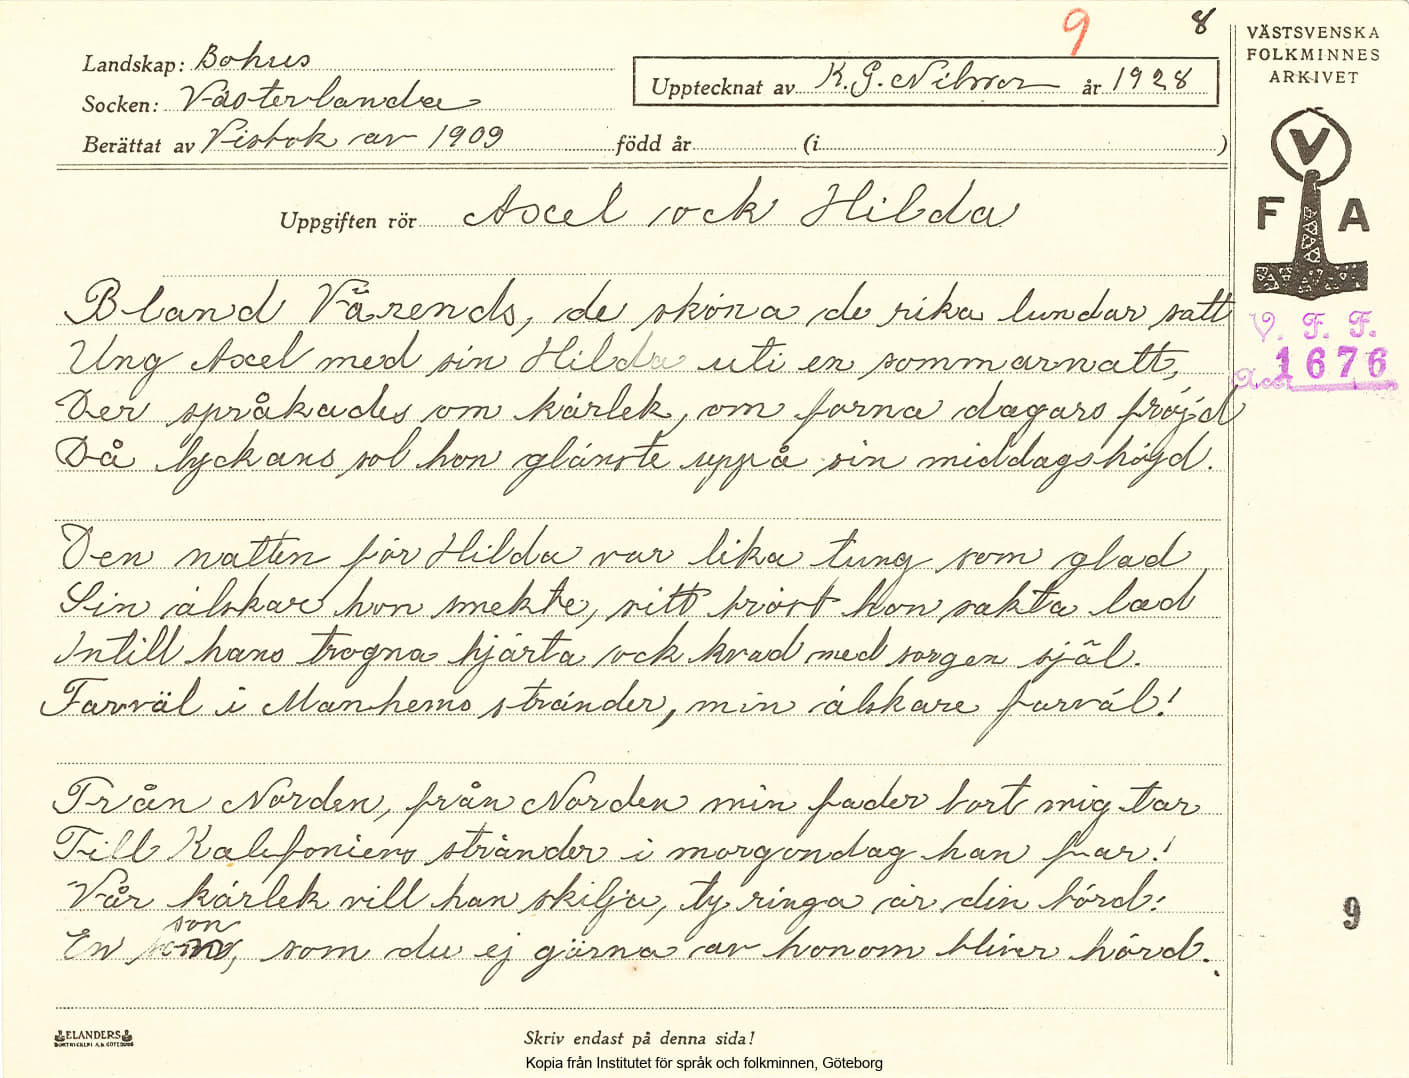 9 8
Landskap: Bohus
Socken: Västerlanda
Berättat av Visbok av 1909 född år (i )
Upptecknat av K. G. Nilsson år 1928
Uppgiften rör Axel ock Hilda
Bland Värends, de sköna de rika lundar satt
Ung Axel med sin Hilda uti en sommarnatt,
Der språkades om kärlek, om forna dagars fröjd
Då lyckans sol hon glänste uppå sin middagshöjd.
Den natten för Hilda var lika tung som glad
Sin älskare hon smekte, sitt bröst hon sakta lad
Intill hans trogna hjärta ock kvad med sorgen själ.
Farväl i Manhems stränder, min älskare farväl!
Från Norden, från Norden min fader bort mig tar
Till Kalefoniens stränder i morgondag han far!
Vår kärlek vill han skilja, ty ringa är din börd:
son
En, som du ej gärna av honom bliver hörd.
ELANDERS
BOKTRYCKERI A.B. GÖTEBORG
Skriv endast på denna sida!
Kopia från Institutet för språk och folkminnen, Göteborg
VÄSTSVENSKA
FOLKMINNES
ARKIVET
V
F A
V. F. F.
Acc. 1676
9